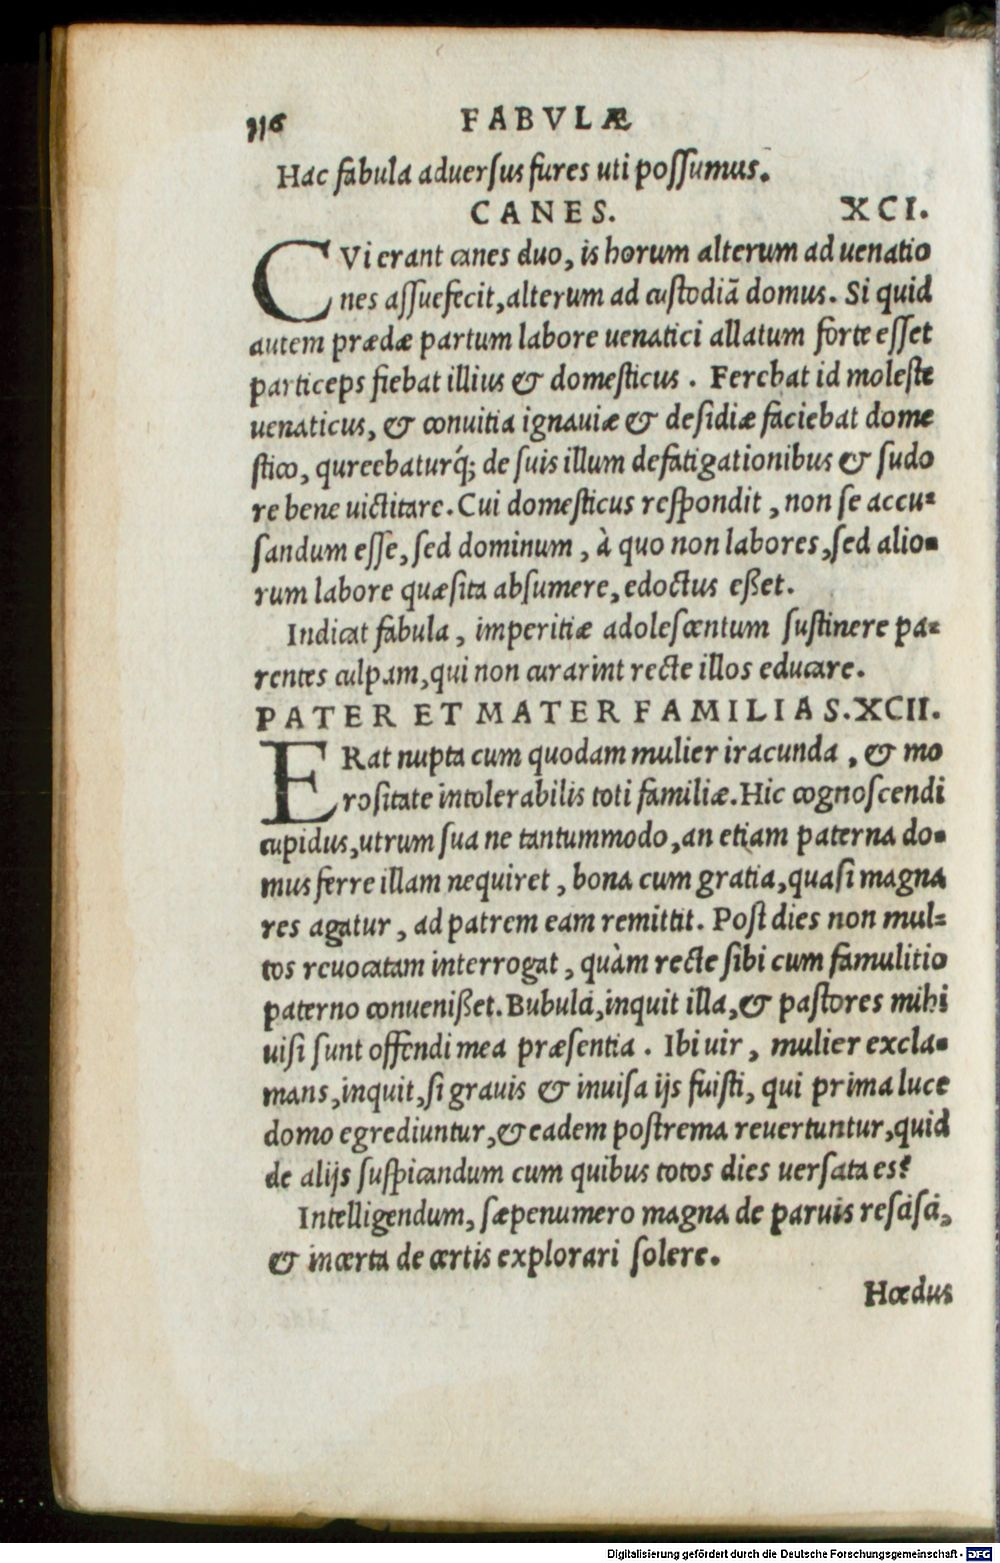 116 FABVLÆ
Hac fabula aduerſus fures uti poſſumus.
CANES. XCI.
CVi erant canes duo, is horum alterum ad uenatio
nes aſſuefecit, alterum ad cuſtodiā domus. Si quid
autem prædæ partum labore uenatici allatum forte eſſet
particeps fiebat illius & domeſticus. Ferebat id moleſte
uenaticus, & conuitia ignauiæ & deſidiæ faciebat dome
ſtico, qureebaturq́; de ſuis illum defatigationibus & ſudo
re bene uictitare. Cui domeſticus reſpondit, non ſe accu-
ſandum eſſe, ſed dominum, à quo non labores, ſed alio-
rum labore quæſita abſumere, edoctus eßet.
Indicat fabula, imperitiæ adoleſcentum ſuſtinere pa-
rentes culpam, qui non curarint recte illos educare.
PATER ET MATER FAMILIAS. XCII.
ERat nupta cum quodam mulier iracunda, & mo
roſitate intolerabilis toti familiæ. Hic cognoſcendi
cupidus, utrum ſua ne tantummodo, an etiam paterna do-
mus ferre illam nequiret, bona cum gratia, quaſi magna
res agatur, ad patrem eam remittit. Poſt dies non mul-
tos reuocatam interrogat, quàm recte ſibi cum famulitio
paterno conuenißet. Bubulci, inquit illa, & paſtores mihi
uiſi ſunt offendi mea præſentia. Ibi uir, mulier excla-
mans, inquit, ſi grauis & inuiſa ijs fuiſti, qui prima luce
domo egrediuntur, & eadem poſtrema reuertuntur, quid
de alijs ſuſpicandum cum quibus totos dies uerſata es?
Intelligendum, ſæpenumero magna de paruis reſciſci,
& incerta de certis explorari ſolere.
Hœdus
Digitalisierung gefördert durch die Deutsche Forschungsgemeinschaft - DFG